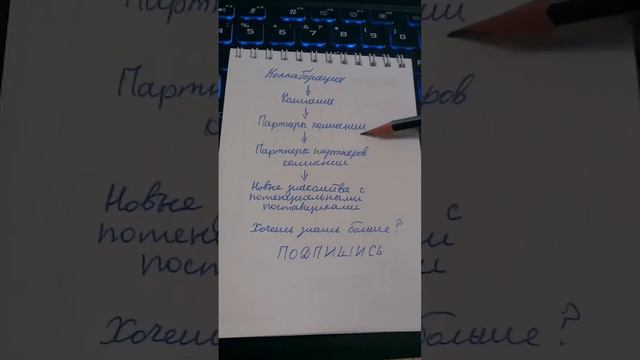 Коллаборация
Компания
Партнеры компании
Партнеры партнеров
компании
Новые знакомства с
потенциальными
поставщиками
Хочешь знать больше?
ПОДПИШИСЬ